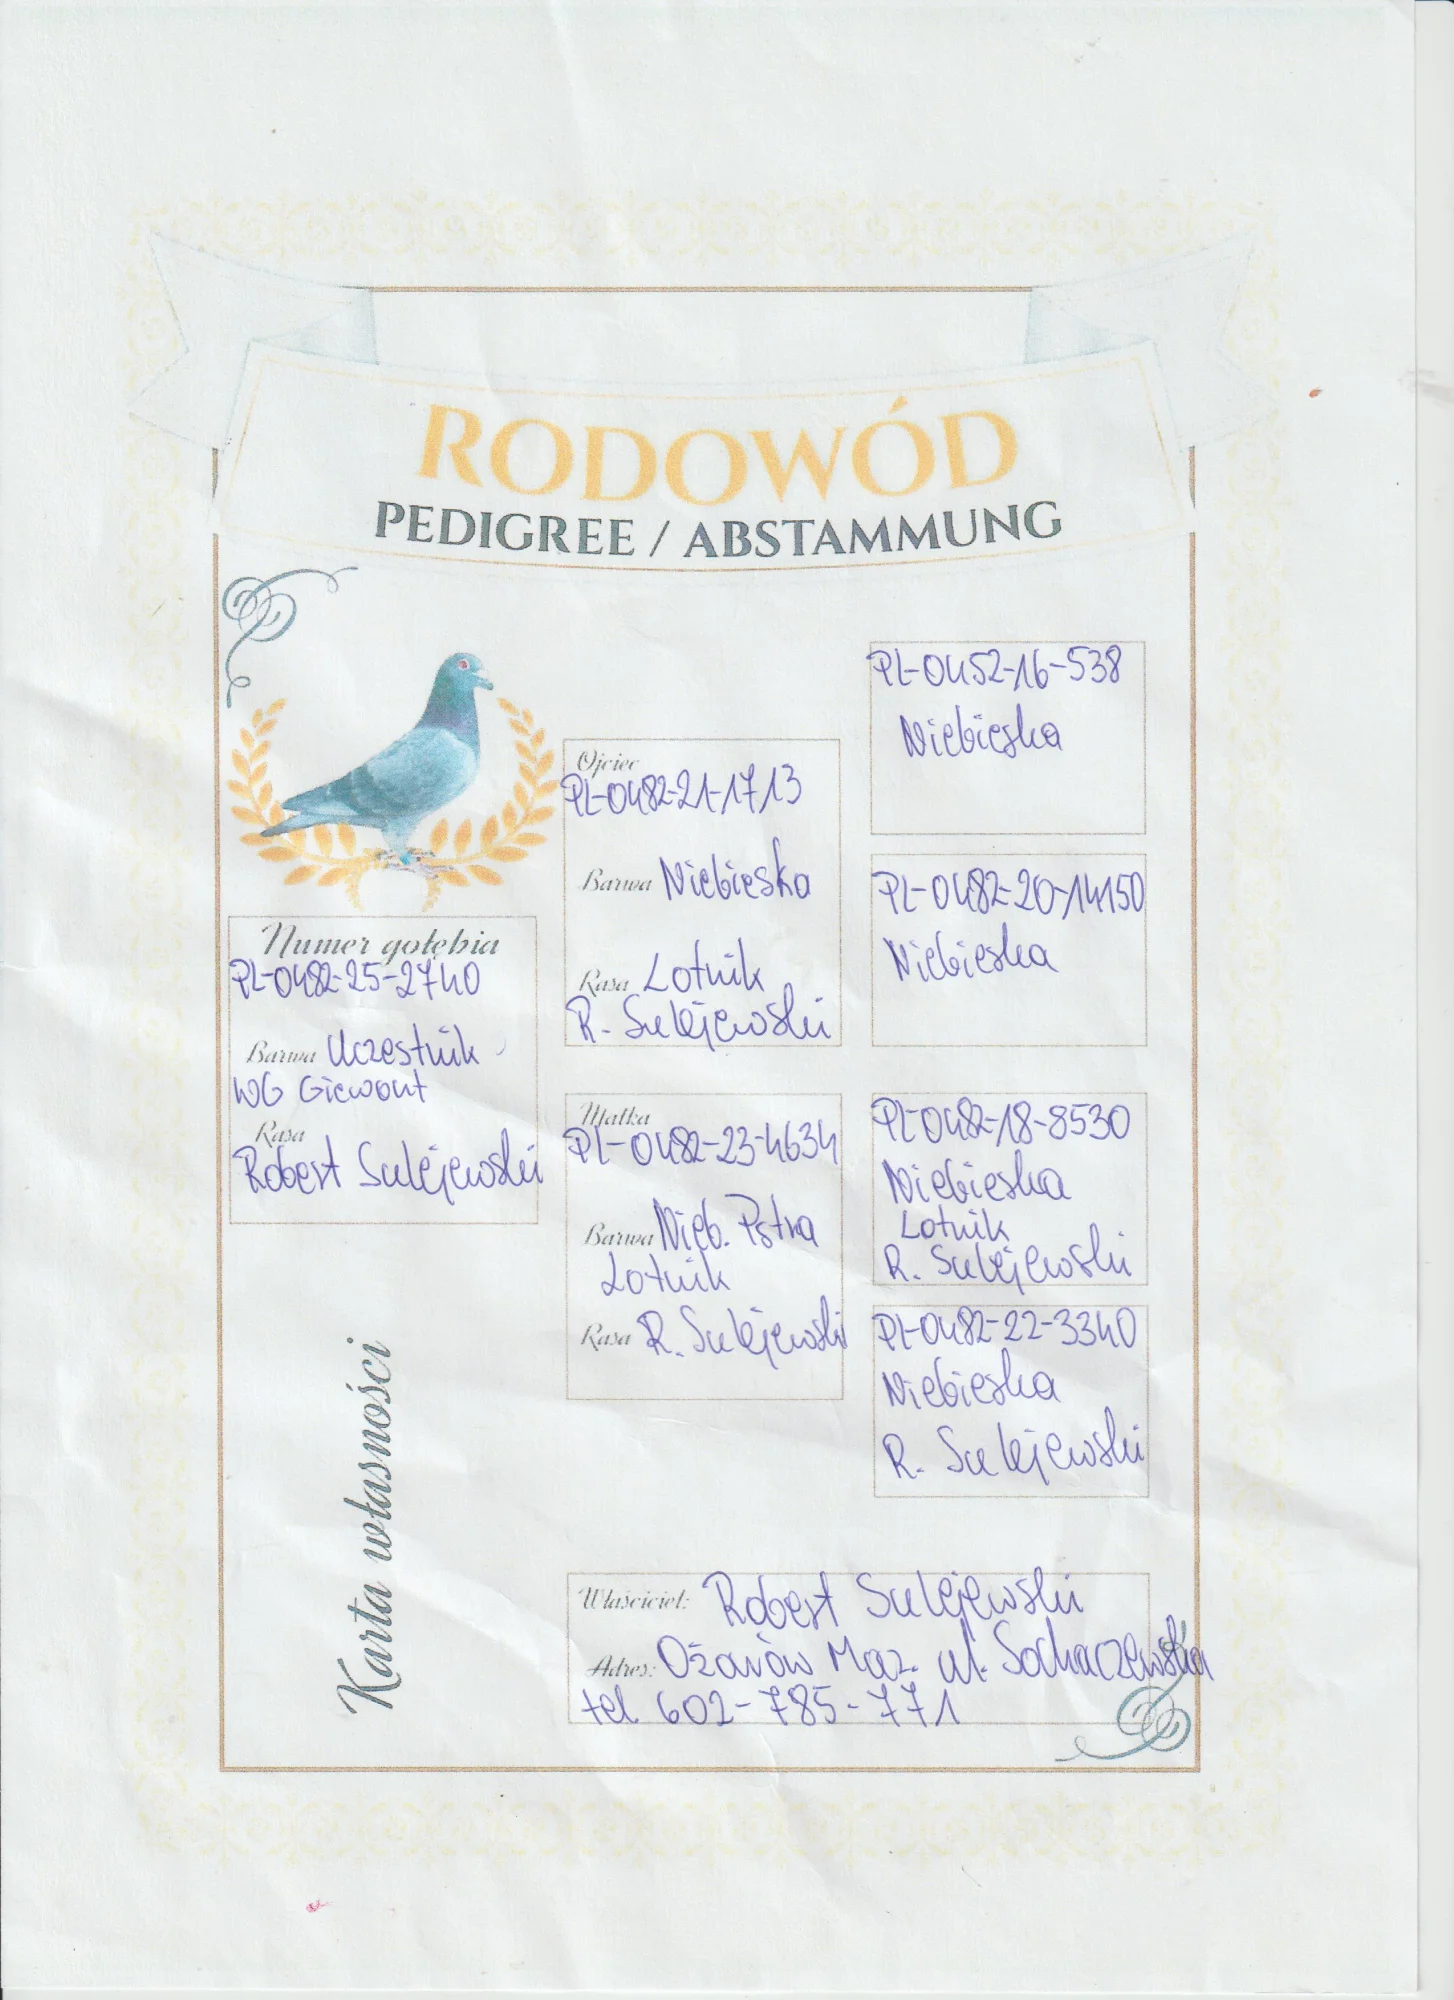 RODOWÓD
PEDIGREE / ABSTAMMUNG
Numer gołębia
PL-0482-25-2740
Barwa Uczestnik
WG Giewont
Rasa
Robert Sulejewski
Ojciec
PL-0482-21-1713
Barwa Niebieska
Rasa Lotnik
R. Sulejewski
Matka
PL-0482-23-4634
Barwa Nieb. Pstra
Lotnik
Rasa R. Sulejewski
PL-0452-16-538
Niebieska
PL-0482-20-14150
Niebieska
PL-0482-18-8530
Niebieska
Lotnik
R. Sulejewski
PL-0482-22-3340
Niebieska
R. Sulejewski
Karta własności
Właściciel: Robert Sulejewski
Adres: Ożarów Maz. ul. Sochaczewska
tel. 602-785-771